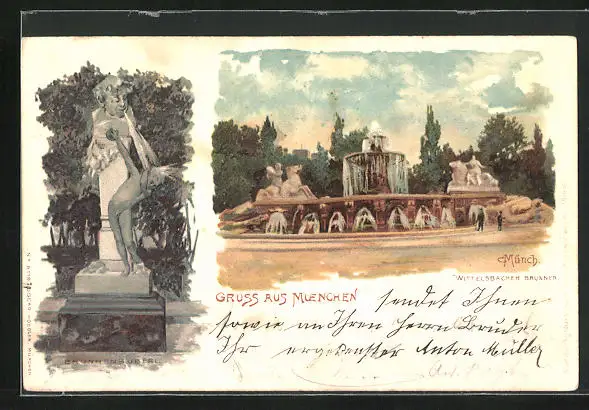 C Münch.
WITTELSBACHER BRUNNEN.
GRUSS AUS MUENCHEN
sendet Ihnen
sowie an Ihren Herrn Bruder
Ihr ergebenster Anton Müller
BRUNNENBUBERL